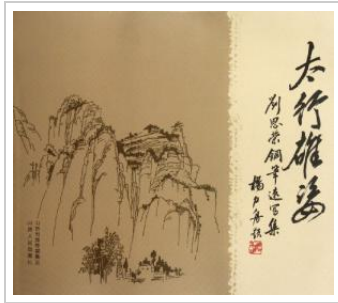 太行雄姿
刘思荣钢笔速写集
杨力舟题